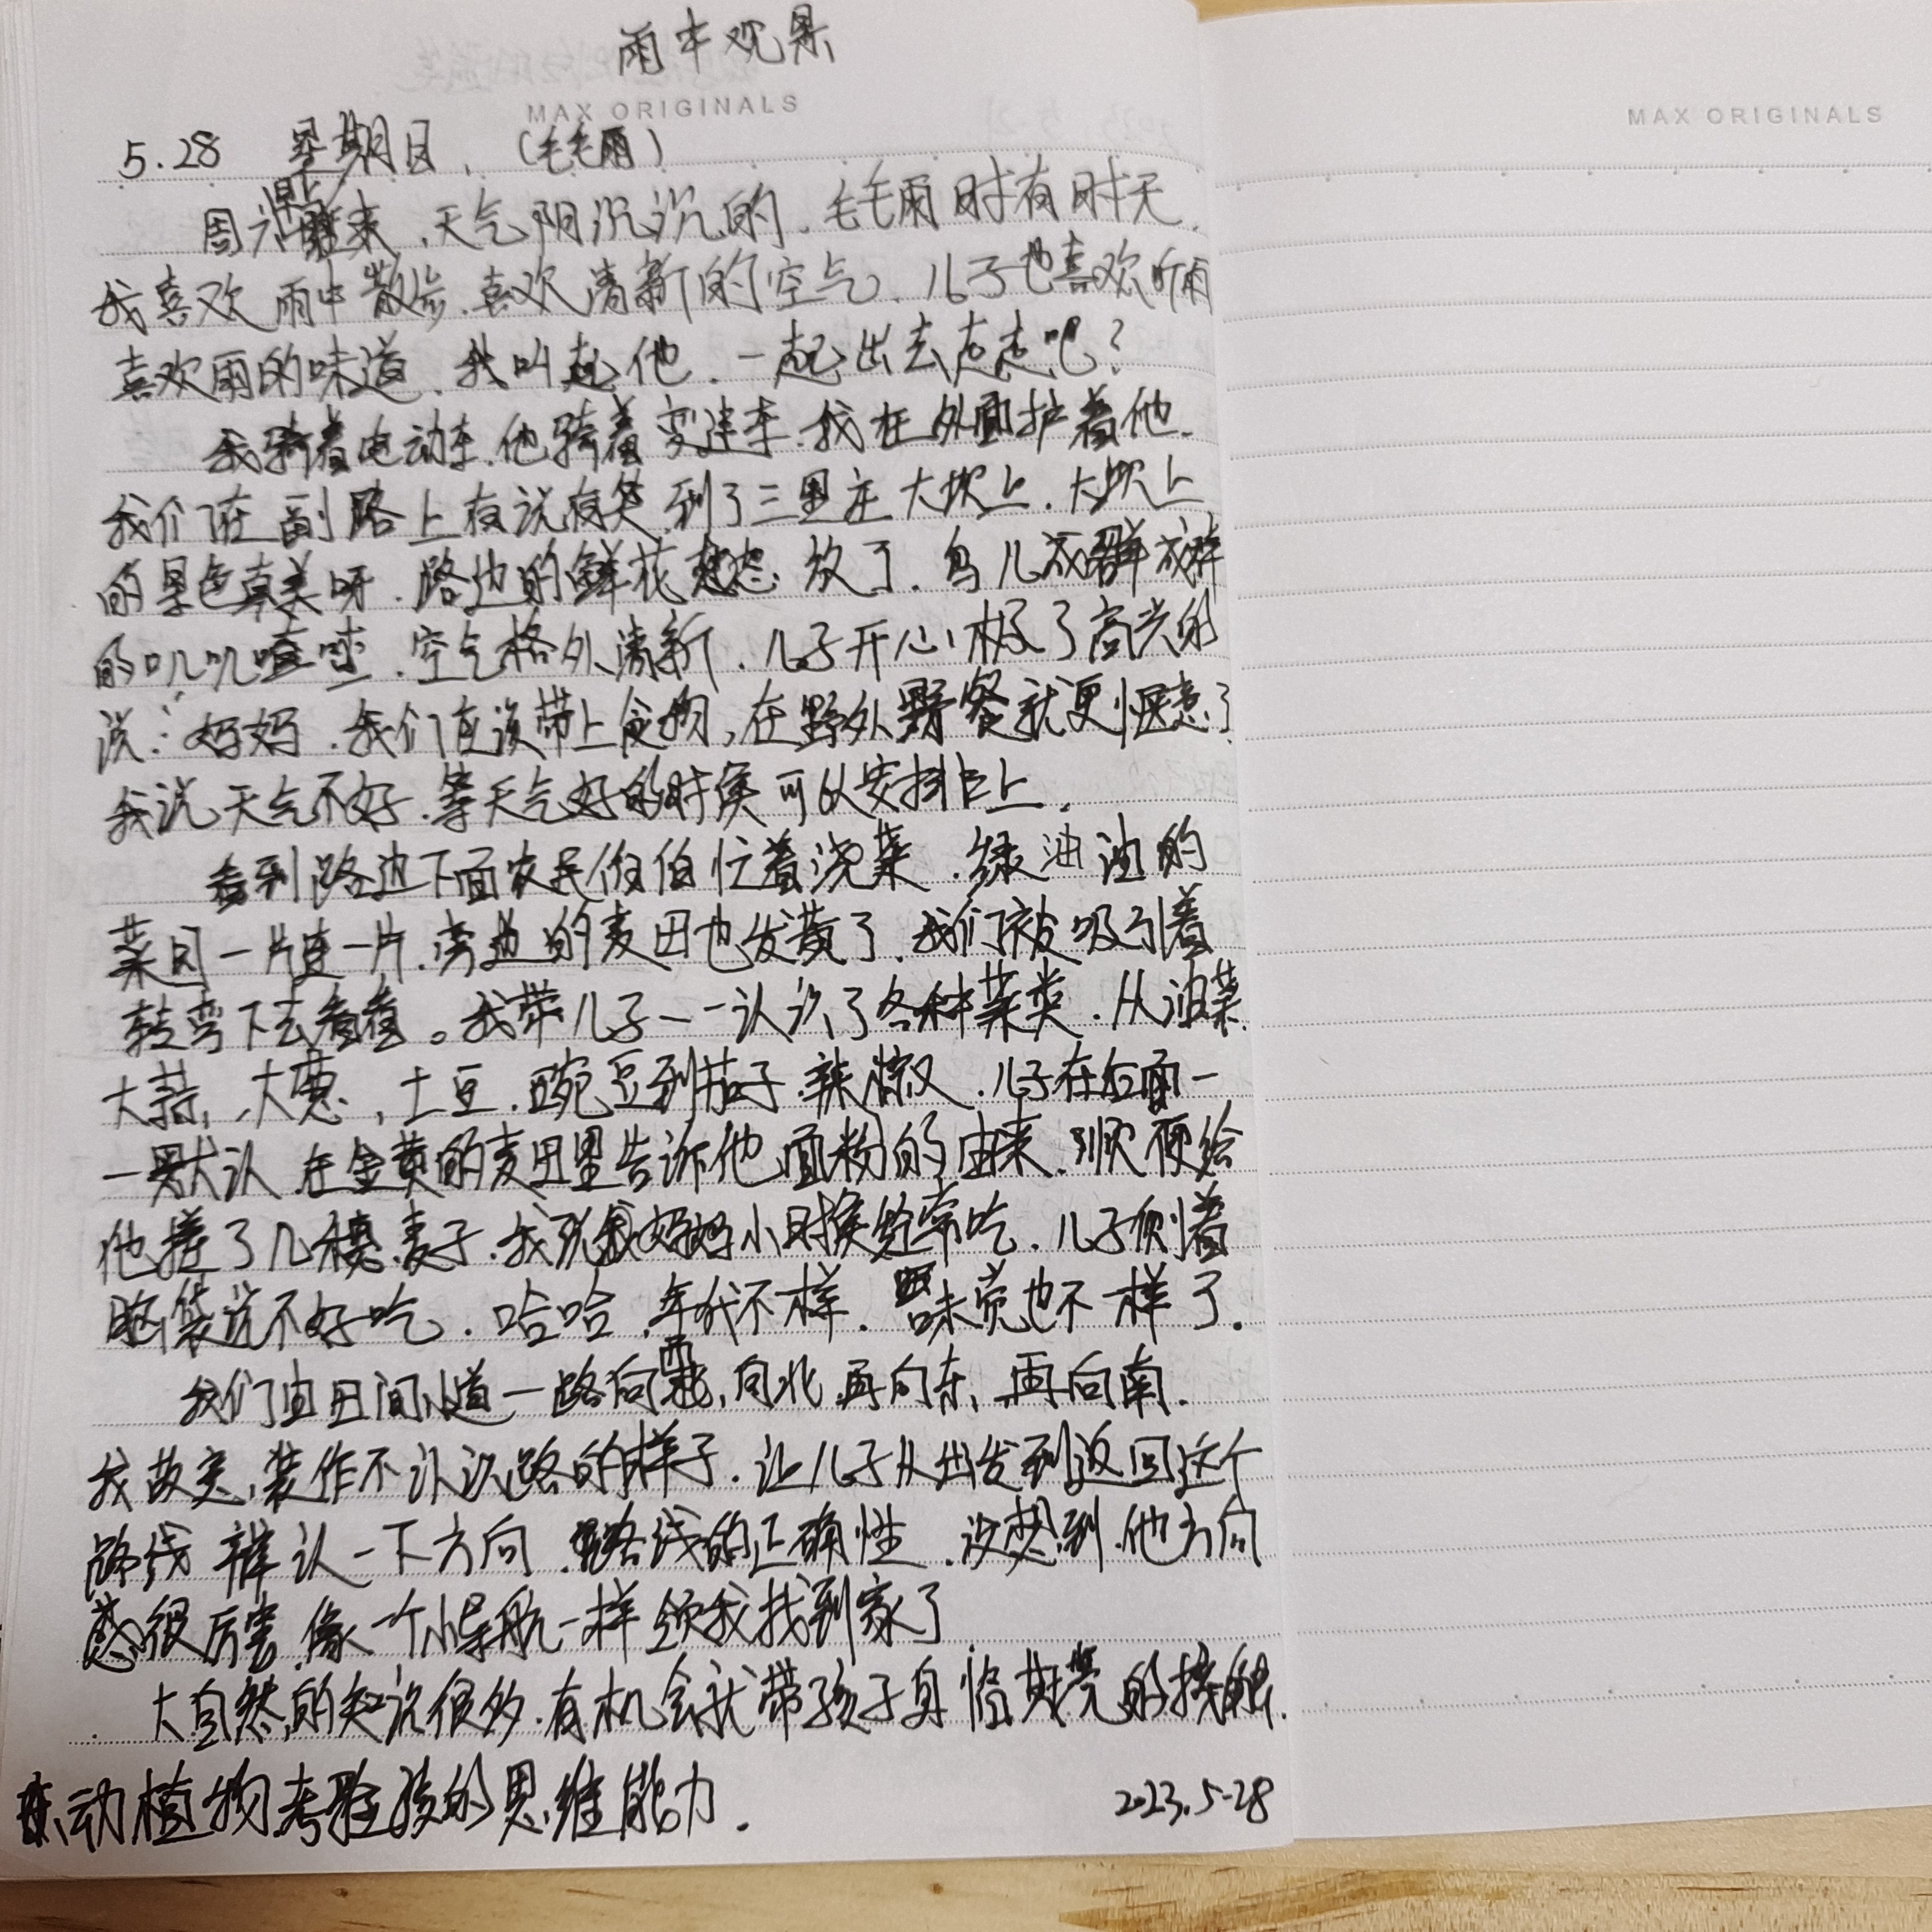 雨中观景
MAX ORIGINALS
MAX ORIGINALS
5.28 星期日，（毛毛雨）
周六醒来，天气阴沉沉的，毛毛雨时有时无，
我喜欢雨中散步，喜欢清新的空气，儿子也喜欢听雨
喜欢雨的味道，我叫起他，一起出去走走吧？
我骑着电动车，他骑着变速车，我在外面护着他，
我们在副路上有说有笑，到了三里庄大坝上，大坝上
的景色真美呀，路边的鲜花 放了，鸟儿成群成群
的叽叽喳喳，空气格外清新，儿子开心极了高兴的
说：妈妈，我们应该带上食物，在野外野餐就更惬意了
我说天气不好，等天气好的时候可以安排上，
看到路边下面农民伯伯忙着浇菜，绿油油的
菜园一片连一片，旁边的麦田也发黄了，我们被吸引着
转弯下去看看。我带儿子一一认识了各种菜类，从油菜，
大蒜，大葱，土豆，豌豆到茄子，辣椒，儿子在后面一
一默认，在金黄的麦田里告诉他面粉的由来，顺便给
他搓了几穗麦子，我说我妈妈小时候经常吃，儿子侧着
脑袋说不好吃，哈哈，年代不一样，味觉也不一样了．
我们由田间小道一路向西，向北，再向东，再向南，
我故意，装作不认识路的样子，让儿子从出发到返回这个
路线 辨认一下方向，路线的正确性，没想到，他方向
感很厉害，像一个小导航一样领我找到家了
大自然的知识很多，有机会就带孩子身临其境的接触，
动植物考验孩的思维能力．
2023.5-28